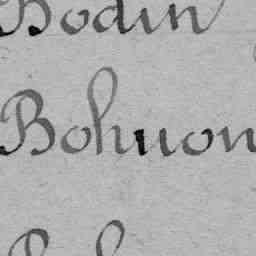 Bodin
Bohuon